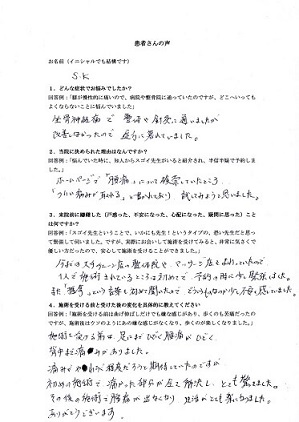 患者さんの声
お名前（イニシャルでも結構です）
S.K
1．どんな症状でお悩みでしたか？
回答例：「膝が慢性的に痛いので、病院や整骨院に通っていたのですが、どこへいっても
よくならないことに悩んでいました」
坐骨神経痛で 整体や針灸に通いましたが
改善しなかったので
2．当院に決められた理由はなんですか？
回答例：「悩んでいた時に、知人からスゴイ先生がいると紹介され、半信半疑で予約しま
した。」
ホームページで「腰痛」について検索していたところ
「つらい痛みが取れる」と書かれており 試してみようと思いました。
3．来院前に躊躇した（戸惑った、不安になった、心配になった、疑問に思った）こと
は何ですか？
回答例：「スゴイ先生ということで、いかにも先生！というタイプの、恐い先生だと思っ
て緊張して伺いました。ですが、実際にお会いして施術を受けてみると、非常に気さくで
優しい方だったので、安心して施術を受けることができました。」
1人で施術されているところは初めてで 予約の時に少し緊張しました。
4．施術を受ける前と受けた後の変化を具体的に教えてください
回答例：「施術を受ける前は曲げ伸ばしだけでも嫌な感じがあり、歩くのも苦痛だった
のですが、施術後はウソのようにあの嫌な感じがなくなり、歩くのが楽しくなりました。」
施術を受ける前は 足にまでひびく腰痛がひどく
背中まで痛みがありました。
初めの施術で 痛かった部分が全て解決し とても驚きました。
その後の施術で腰痛が出なくなり
ありがとうございます